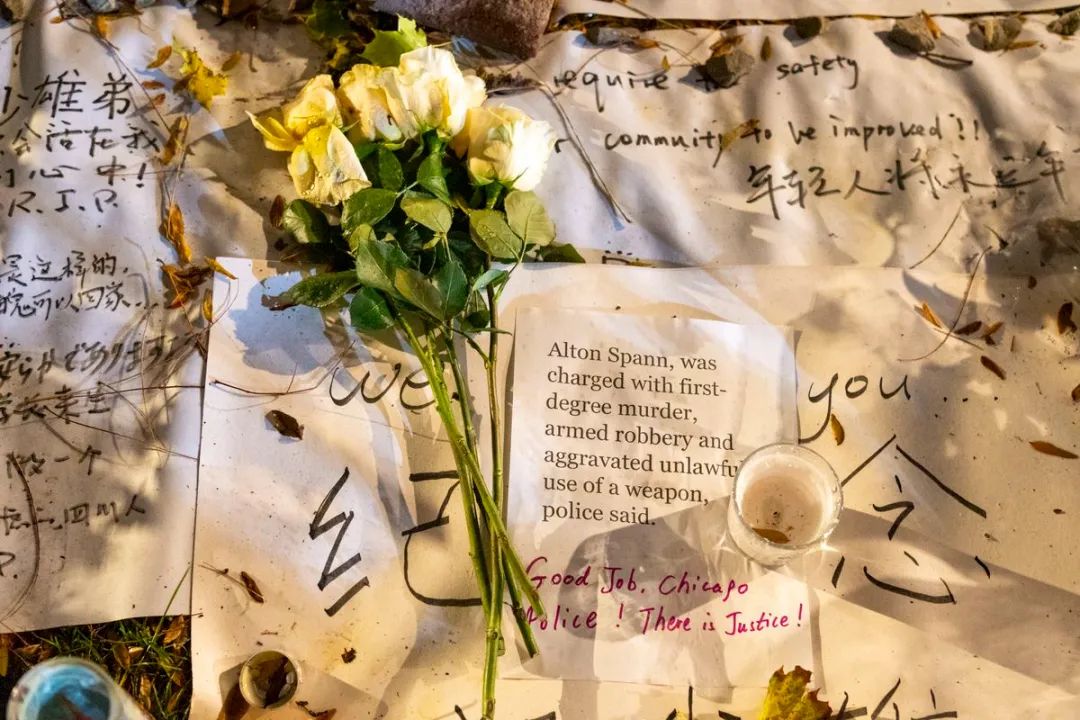 少雄弟
会活在我
心中!
R.I.P.
require safety
community to be improved!!
年轻人将永远年
是这样的,
可以回家...
学长来生
做一个
四川人
We you...
纪念
Alton Spann, was
charged with first-
degree murder,
armed robbery and
aggravated unlawfu
use of a weapon,
police said.
Good Job, Chicago
Police! There is Justice!